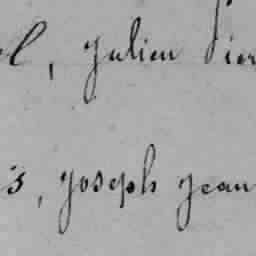 l, Julien Pier
s, Joseph Jean